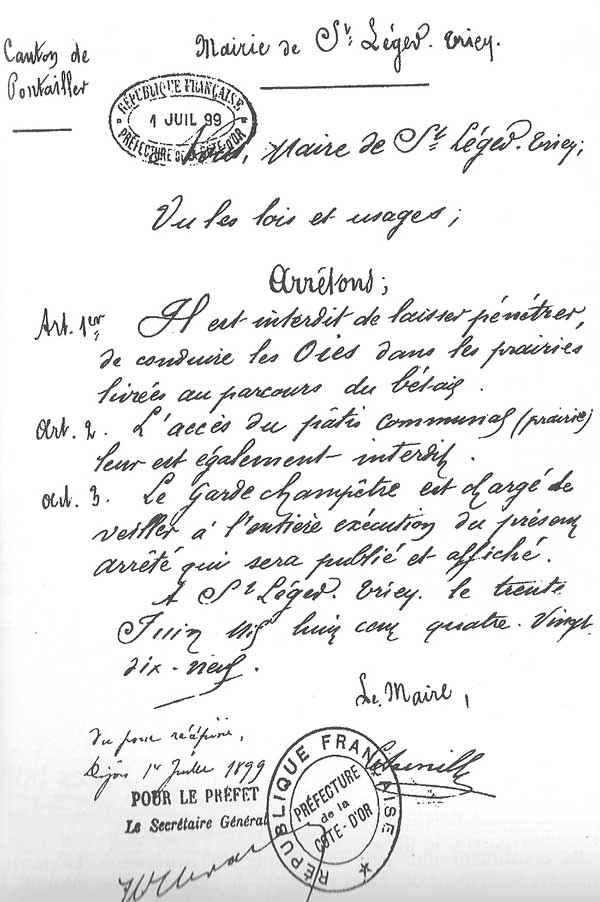 Canton de
Pontailler
Mairie de St. Léger. Triey.
RÉPUBLIQUE FRANÇAISE
1 JUIL 99
PRÉFECTURE DE LA CÔTE D'OR
Nous, Maire de St Léger. Triey;
Vu les lois et usages;
Arrêtons;
Art. 1er Il est interdit de laisser pénétrer,
de conduire les Oies dans les prairies
livrées au parcours du bétail.
Art. 2. L'accès du pâtis communal (prairie)
leur est également interdit.
Art. 3. Le Garde champêtre est chargé de
veiller à l'entière exécution du présent
arrêté qui sera publié et affiché.
A St Léger. Triey. le trente
Juin mil huit cent quatre. Vingt
dix-neuf.
Le Maire,
Vu pour récépissé,
Dijon 1er Juillet 1899
POUR LE PRÉFET
Le Secrétaire Général
RÉPUBLIQUE FRANÇAISE
PRÉFECTURE
de la
CÔTE-D'OR